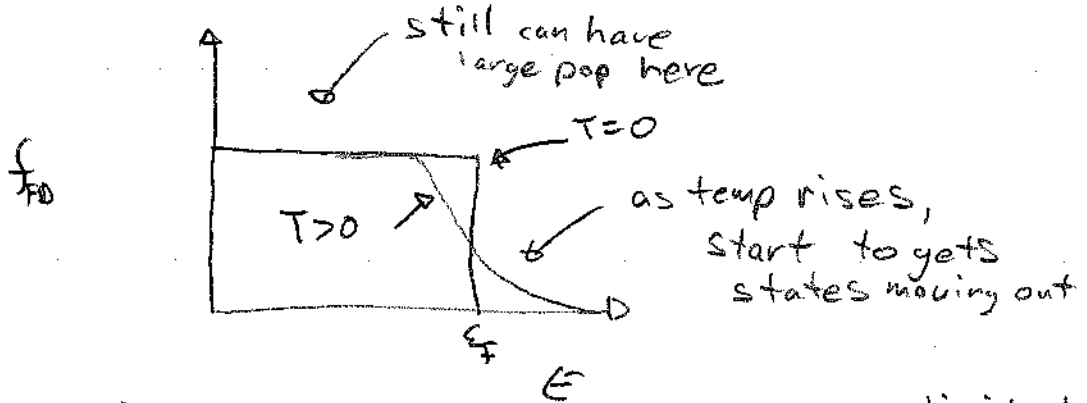 still can have
large pop here
T=0
f_FD
T>0
as temp rises,
start to gets
states moving out
ε_F
E